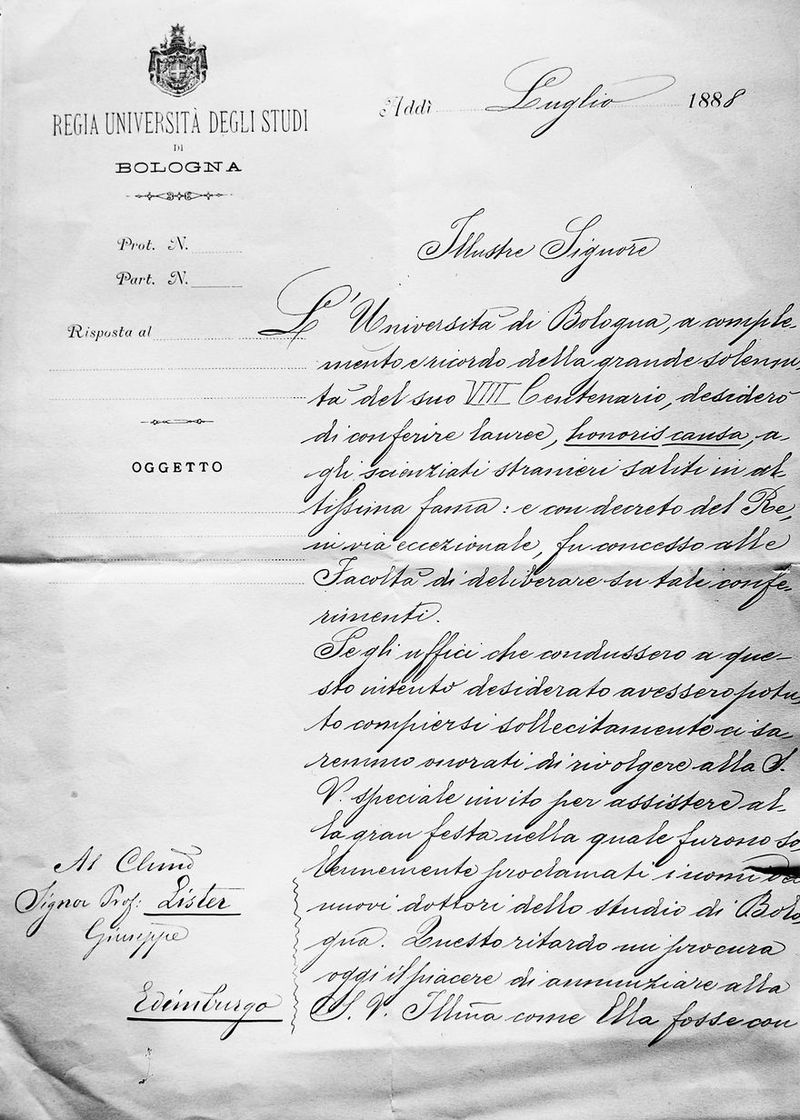 REGIA UNIVERSITÀ DEGLI STUDI
DI
BOLOGNA
Addì Luglio 1888
Prot. N.
Part. N.
Risposta al
OGGETTO
Illustre Signore
L'Università di Bologna, a comple-
mento e ricordo della grande solenni-
tà del suo VIII Centenario, desiderò
di conferire lauree, honoris causa, a-
gli scienziati stranieri saliti in al-
tissima fama: e con decreto del Re,
in via eccezionale, fu concesso alle
Facoltà di deliberare su tali confe-
rimenti.
Se gli uffici che condussero a que-
sto intento desiderato avessero potu-
to compiersi sollecitamente ci sa-
remmo onorati di rivolgere alla S.
V. speciale invito per assistere al-
la gran festa nella quale furono so
lennemente proclamati i nomi dei
nuovi dottori dello studio di Bolo-
gna. Questo ritardo mi procura
oggi il piacere di annunziare alla
S. V. Illma come Ella fosse con
Al Clmo
Signor Prof: Lister
Giuseppe
Edimburgo